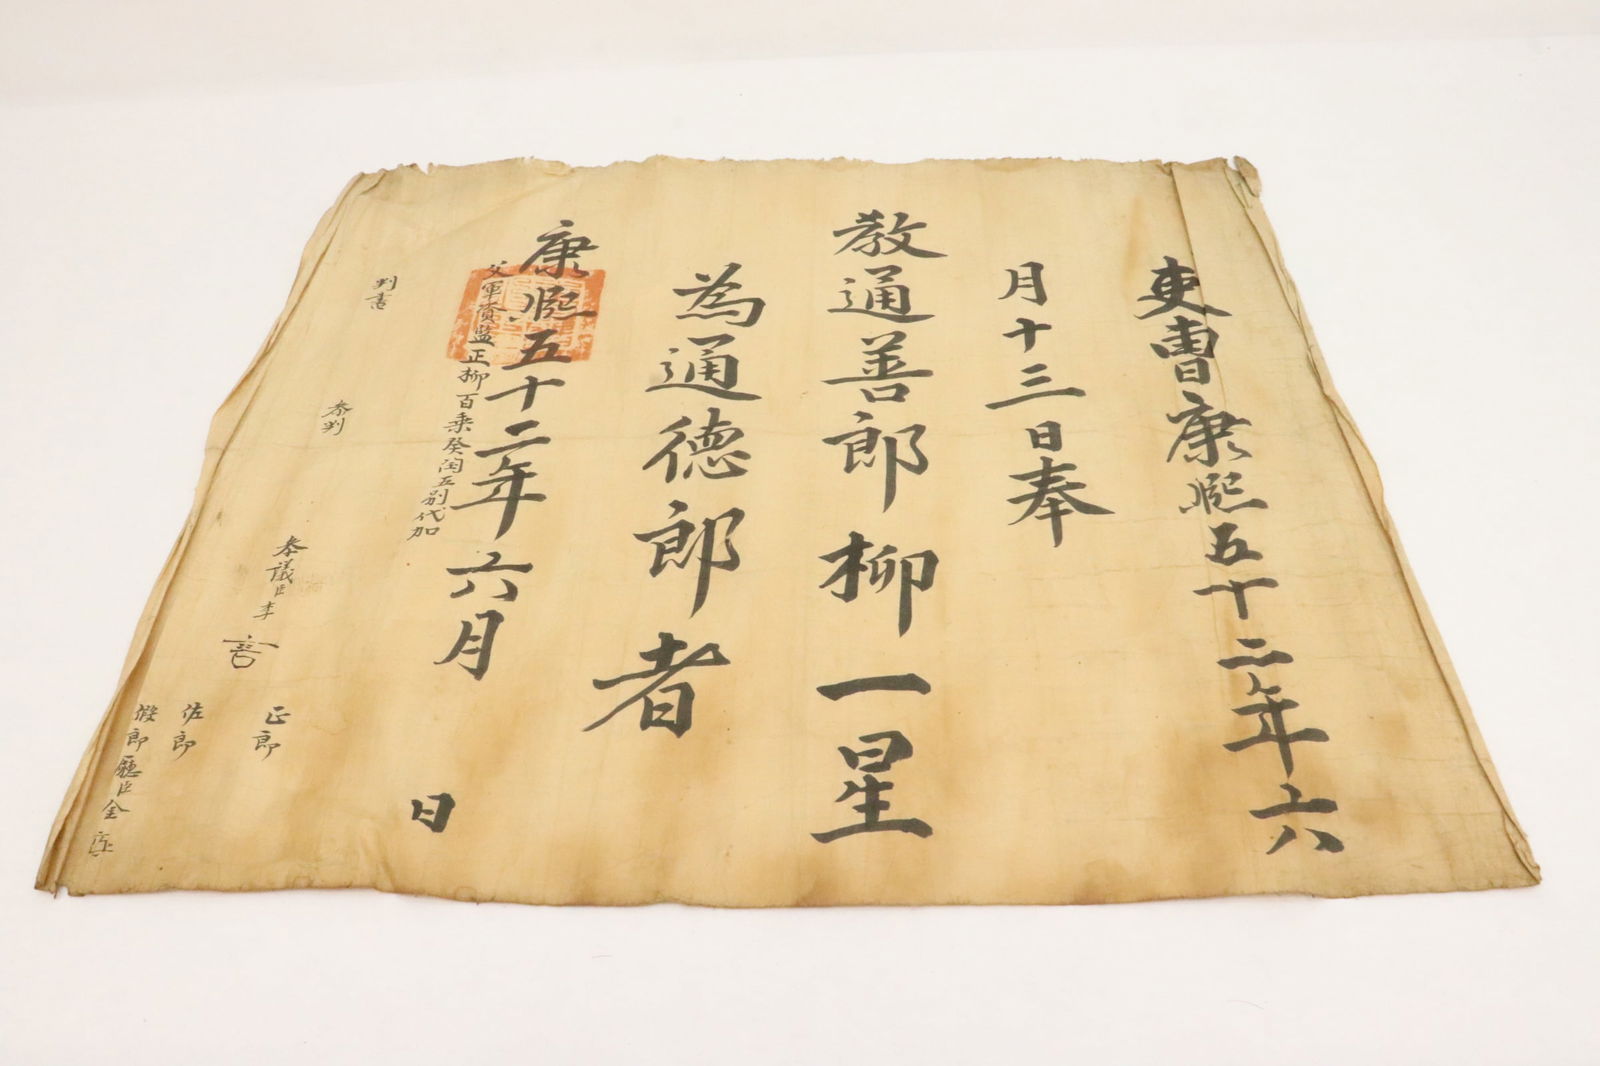 吏曹康熙五十二年六
月十三日奉
教通善郎柳一星
為通德郎者
康熙五十二年六月 日
父軍資監正柳百乘癸閏五別代加
判書
参判
参議臣李
正郎
佐郎
假郎廳臣金